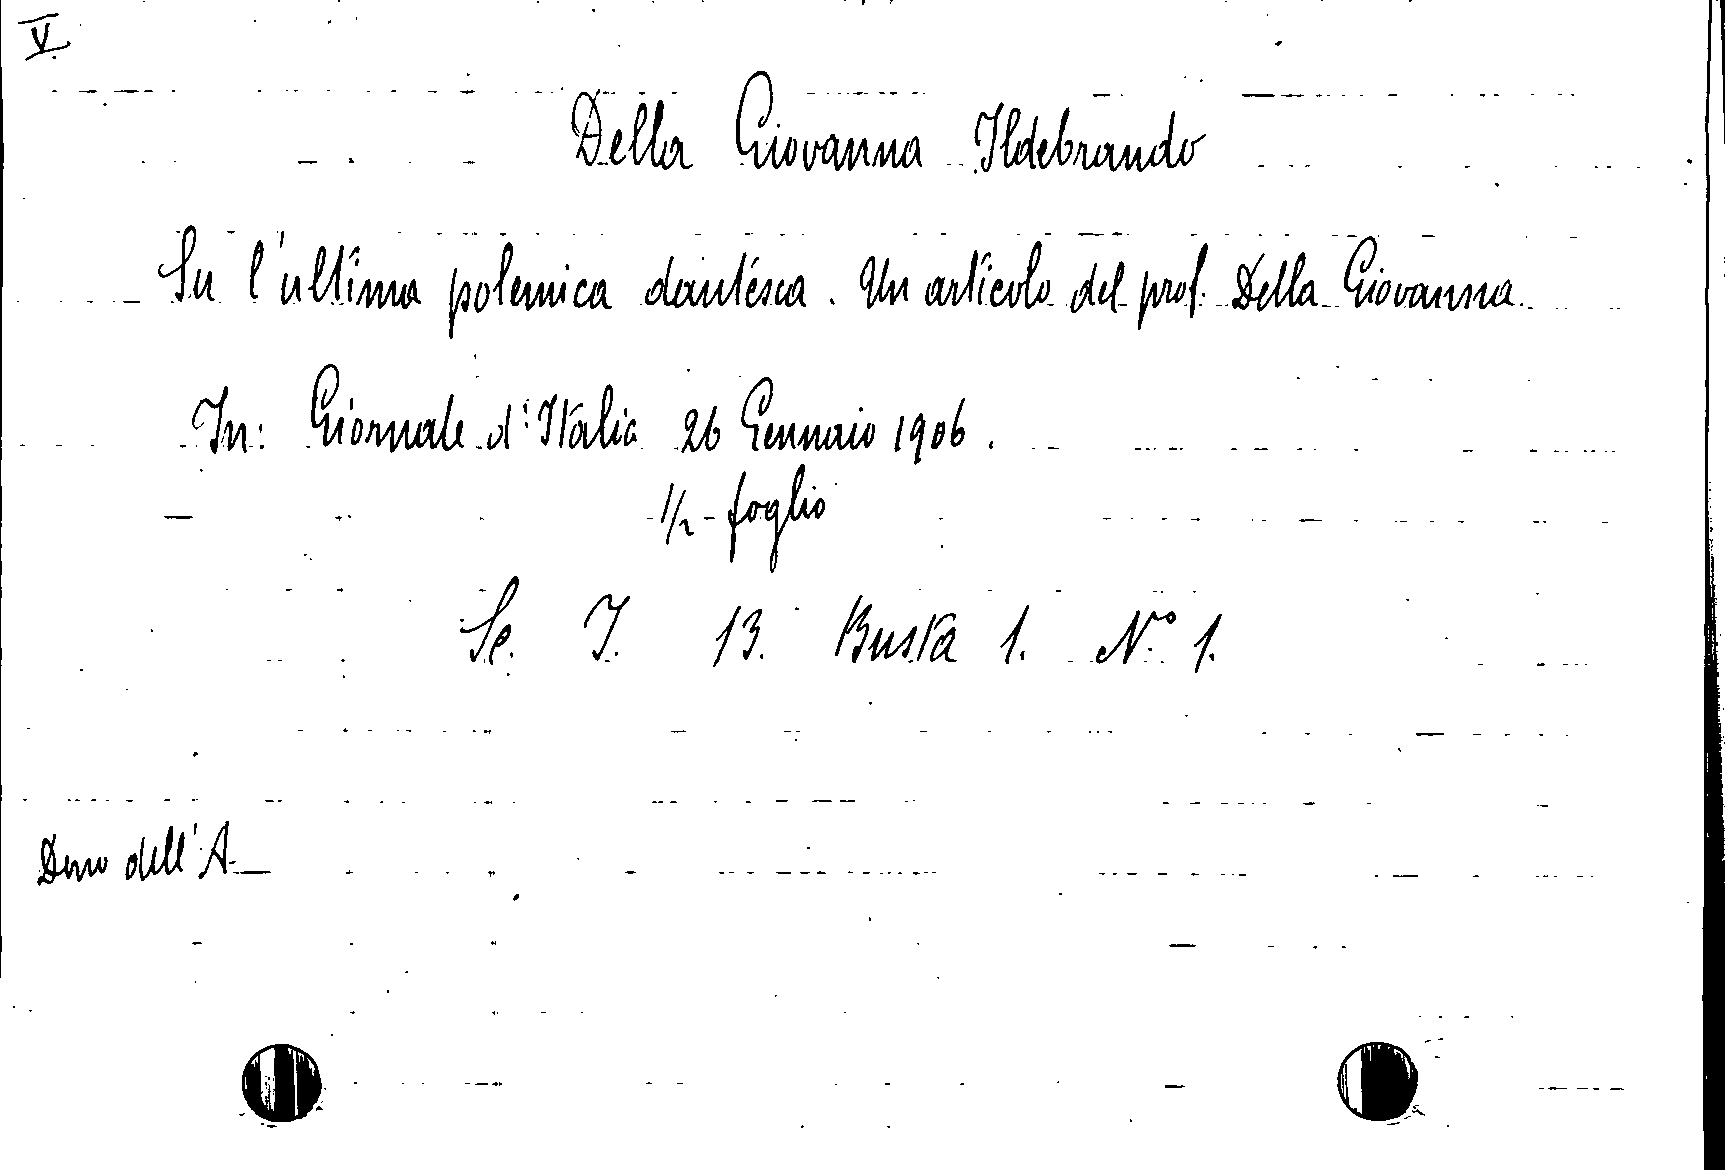 V.
Della Giovanna Ildebrando
Su l'ultima polemica dantesca. Un articolo del prof. Della Giovanna
In: Giornale d'Italia 26 Gennaio 1906.
1/2 foglio
Sc. I. 13. Busta 1. N.° 1.
Dono dell'A.